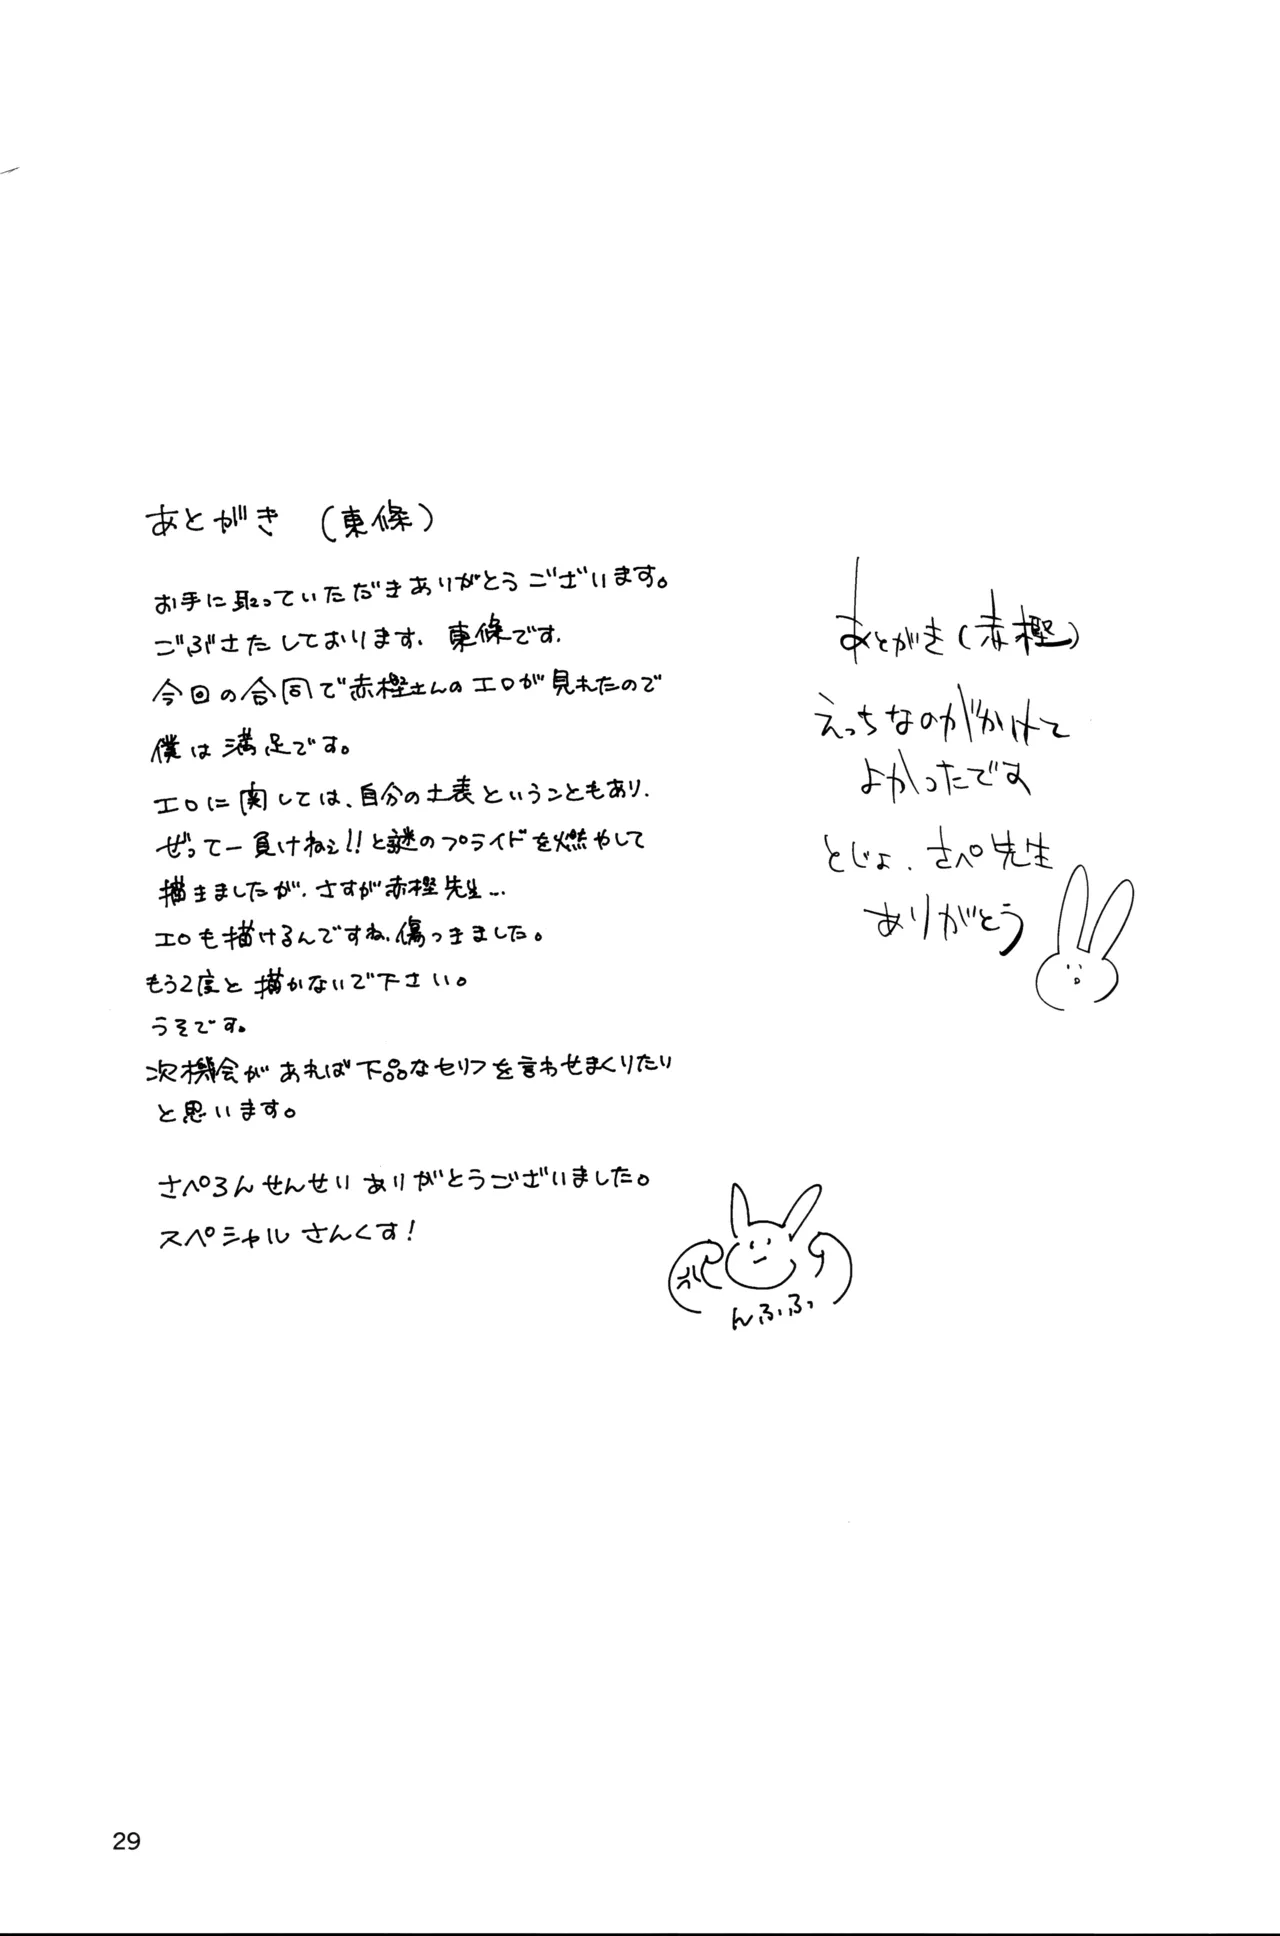 あとがき (東條)
お手に取っていただきありがとうございます。
ごぶさたしております、東條です。
今回の合同で赤樫さんのエロが見れたので
僕は満足です。
エロに関しては、自分の土表ということもあり、
ぜってー負けねェ!!と謎のプライドを燃やして
描きましたが、さすが赤樫先生…
エロも描けるんですね、傷つきました。
もう2度と描かないで下さい。
うそです。
次機会があれば下品なセリフを言わせまくりたい
と思います。
さぺろんせんせいありがとうございました。
スペシャルさんくす!
んふふっ
あとがき(赤樫)
えっちなのがかけて
よかったです
とじょ、さぺ先生
ありがとう
29